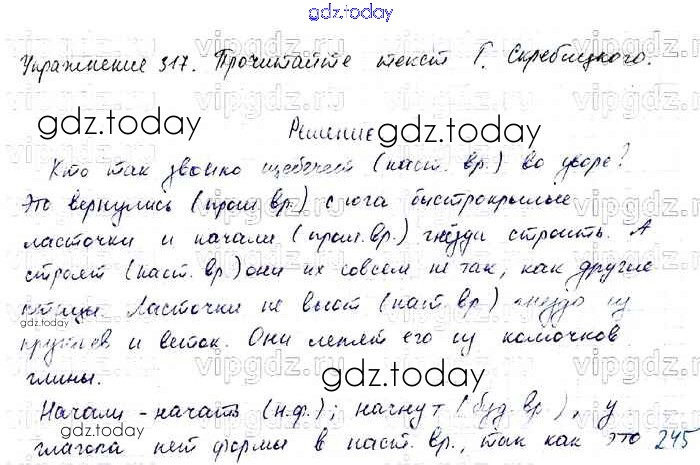 gdz.today
Упражнение 317. Прочитайте текст Г. Скребицкого.
gdz.today
Решение
Кто так звонко щебечет (наст. вр.) во дворе?
Это вернулись (прош. вр.) с юга быстрокрылые
ласточки и начали (прош. вр.) гнёзда строить. А
строят (наст. вр.) они их совсем не так, как другие
птицы. Ласточки не вьют (наст. вр.) гнездо из
gdz.today
прутьев и веток. Они лепят его из комочков
глины.
gdz.today
Начали - начать (н.ф.); начнут (буд. вр.), у
глагола нет формы в наст. вр., так как это 245
gdz.today